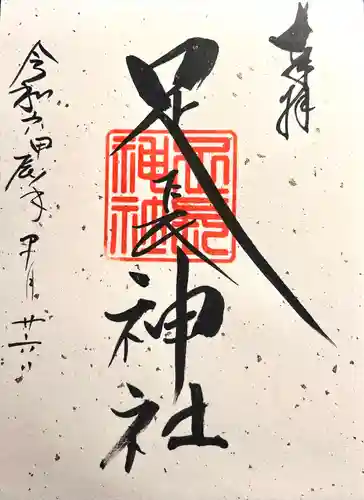 奉拝
足長神社
足長神社
令和六甲辰年
月廿六日